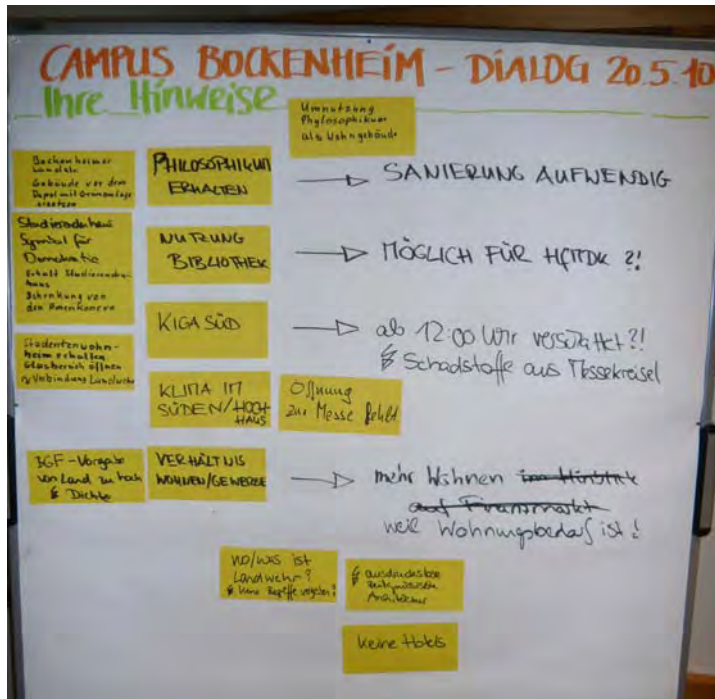 CAMPUS BOCKENHEIM - DIALOG 20.5.10
Ihre Hinweise
Umnutzung
Phylosophikum
als Wohngebäude
Bockenheimer
Gebäude vor dem
Depot mit Grünanlage
ersetzen
PHILOSOPHIKUM
ERHALTEN
SANIERUNG AUFWENDIG
Studierendenhaus
Symbol für
Demokratie
Erhalt Studierenden-
haus
Schenkung von
den Amerikanern
NUTZUNG
BIBLIOTHEK
MÖGLICH FÜR HfMDK ?!
KIGA SÜD
ab 12:00 Uhr verschattet?!
Schadstoffe aus Messekreisel
Studentenwohn-
heim erhalten
Glasbereich öffnen
Verbindung
KLIMA IM
SÜDEN/HOCH
HAUS
Öffnung
zur Messe fehlt
BGF-Vorgabe
von Land zu hoch
Dichte
VERHÄLTNIS
WOHNEN/GEWERBE
mehr Wohnen im Hinblick
auf Finanzmarkt
weil Wohnungsbedarf ist!
wo/was ist
Landwehr?
keine Begriffe vorgeben!
ausdruckslose
Architektur
keine Hotels